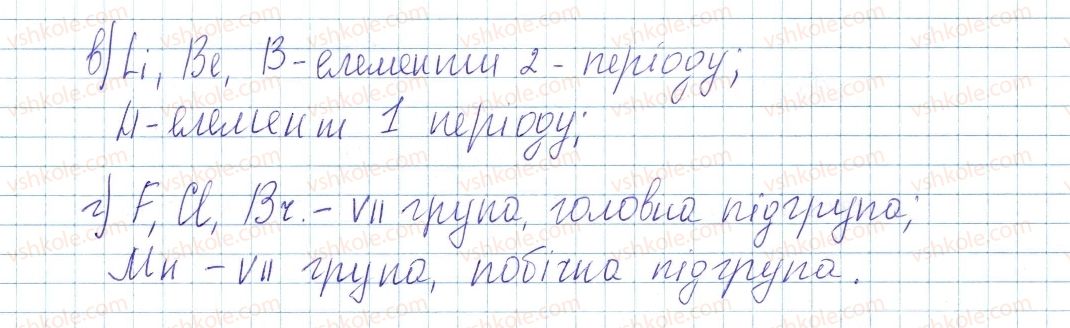 в) Li, Be, B - елементи 2 - періоду;
H - елемент 1 періоду;
г) F, Cl, Br. - VII група, головна підгрупа;
Mn - VII група, побічна підгрупа.